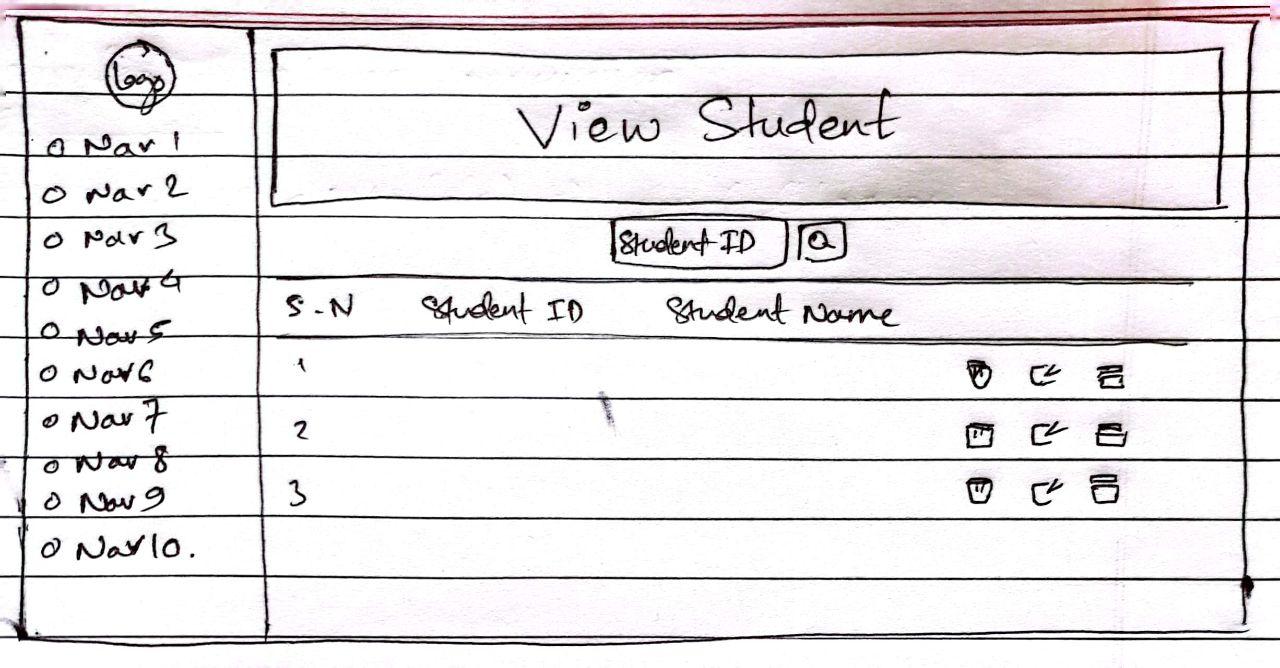 Logo
Nav 1
Nav 2
Nav 3
Nav 4
Nav 5
Nav 6
Nav 7
Nav 8
Nav 9
Nav 10.
View Student
Student ID
S.N Student ID Student Name
1
2
3